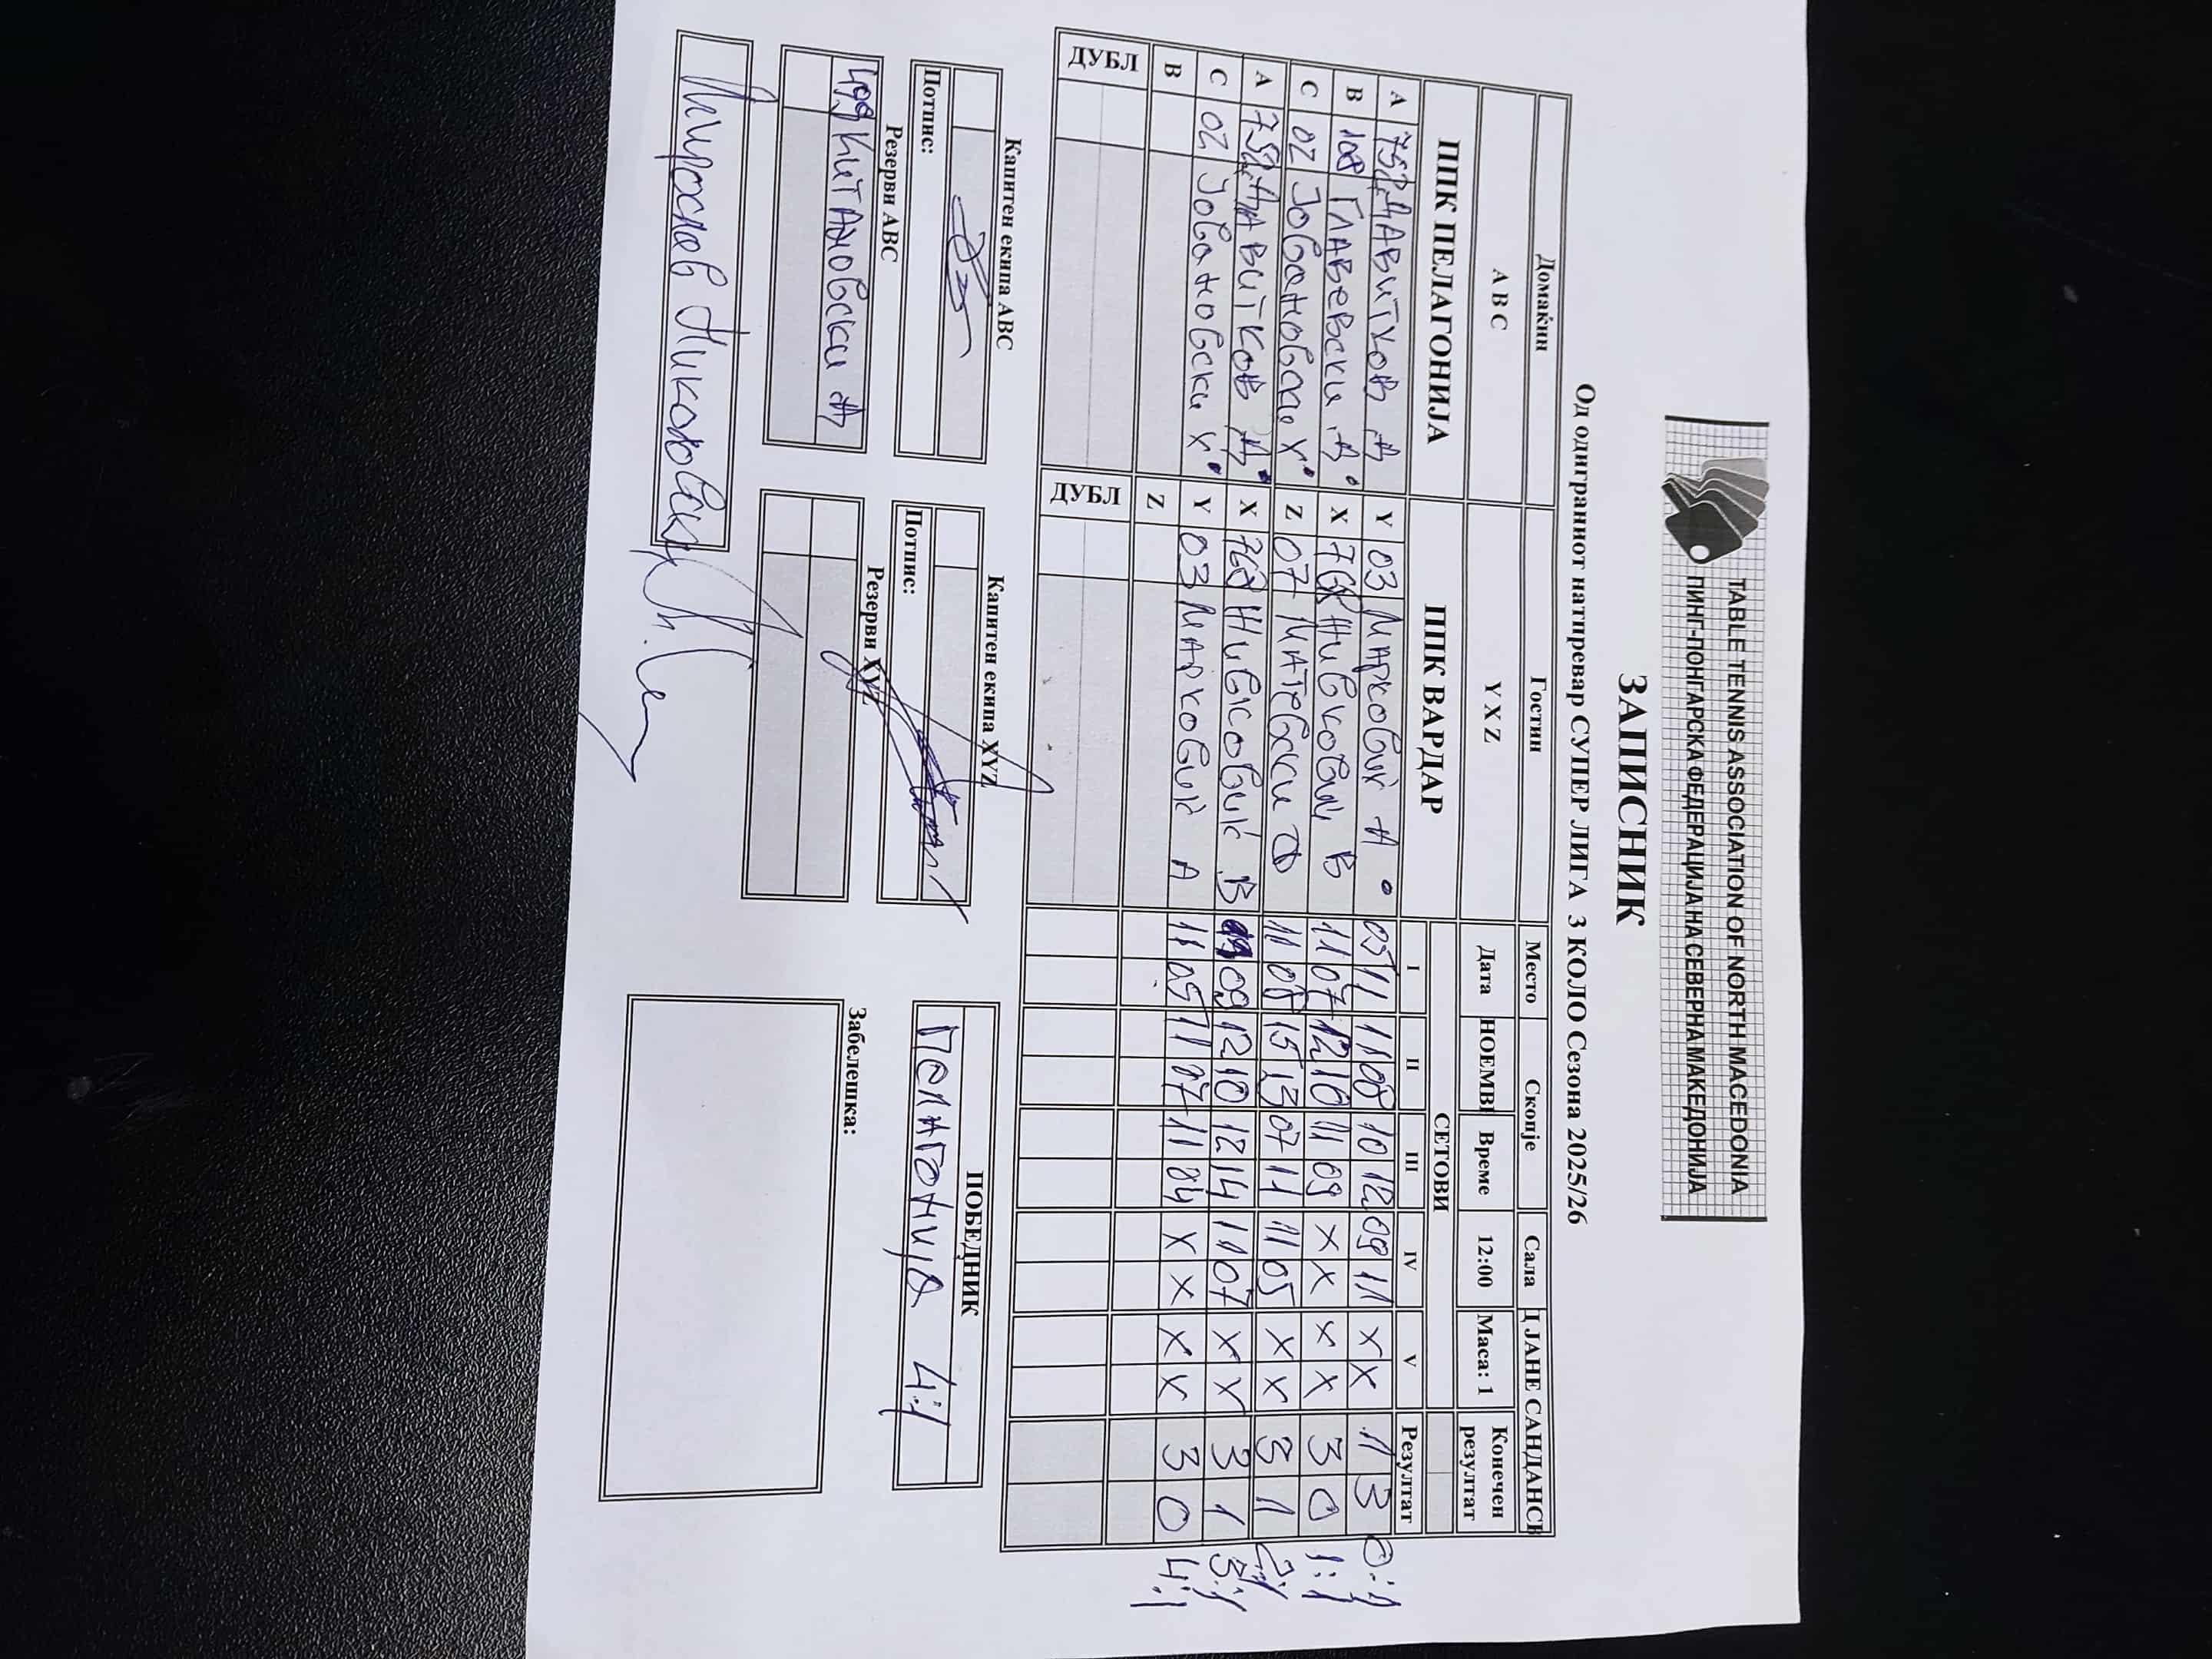 TABLE TENNIS ASSOCIATION OF NORTH MACEDONIA
ПИНГ-ПОНГАРСКА ФЕДЕРАЦИЈА НА СЕВЕРНА МАКЕДОНИЈА
ЗАПИСНИК
Од одиграниот натпревар СУПЕР ЛИГА 3 КОЛО Сезона 2025/26
Домаќин Гостин Место Скопје Сала Ц ЈАНЕ САНДАНСК
A B C Y X Z Дата НОЕМВІ Време 12:00 Маса: 1 Конечен резултат
ППК ПЕЛАГОНИЈА ППК ВАРДАР СЕТОВИ
I II III IV V Резултат
A 752 ДАВИТКОВ Д Y 03 МАРКОВИЌ А 05 11 11 08 10 12 09 11 X X 1 3 0:1
B 108 ГЛАВЕВСКИ Д X 768 ЖИВКОВИЌ В 11 07 12 10 11 09 X X X X 3 0 1:1
C 02 ЈОВАНОВСКИ Х Z 07 МАТЕВСКИ Ф 11 08 15 13 07 11 11 05 X X 3 1 2:1
A 752 ДАВИТКОВ Д X 768 ЖИВКОВИЌ В 09 12 10 12 14 11 07 X X 3 1 3:1
C 02 ЈОВАНОВСКИ Х Y 03 МАРКОВИЌ А 11 05 11 07 11 04 X X X X 3 0 4:1
B Z
ДУБЛ ДУБЛ
Капитен екипа ABC Капитен екипа XYZ ПОБЕДНИК
ПЕЛАГОНИЈА 4:1
Потпис: Потпис:
Резерви ABC Резерви XYZ Забелешка:
499 КИТАНОВСКИ Д
Мирослав Николовски